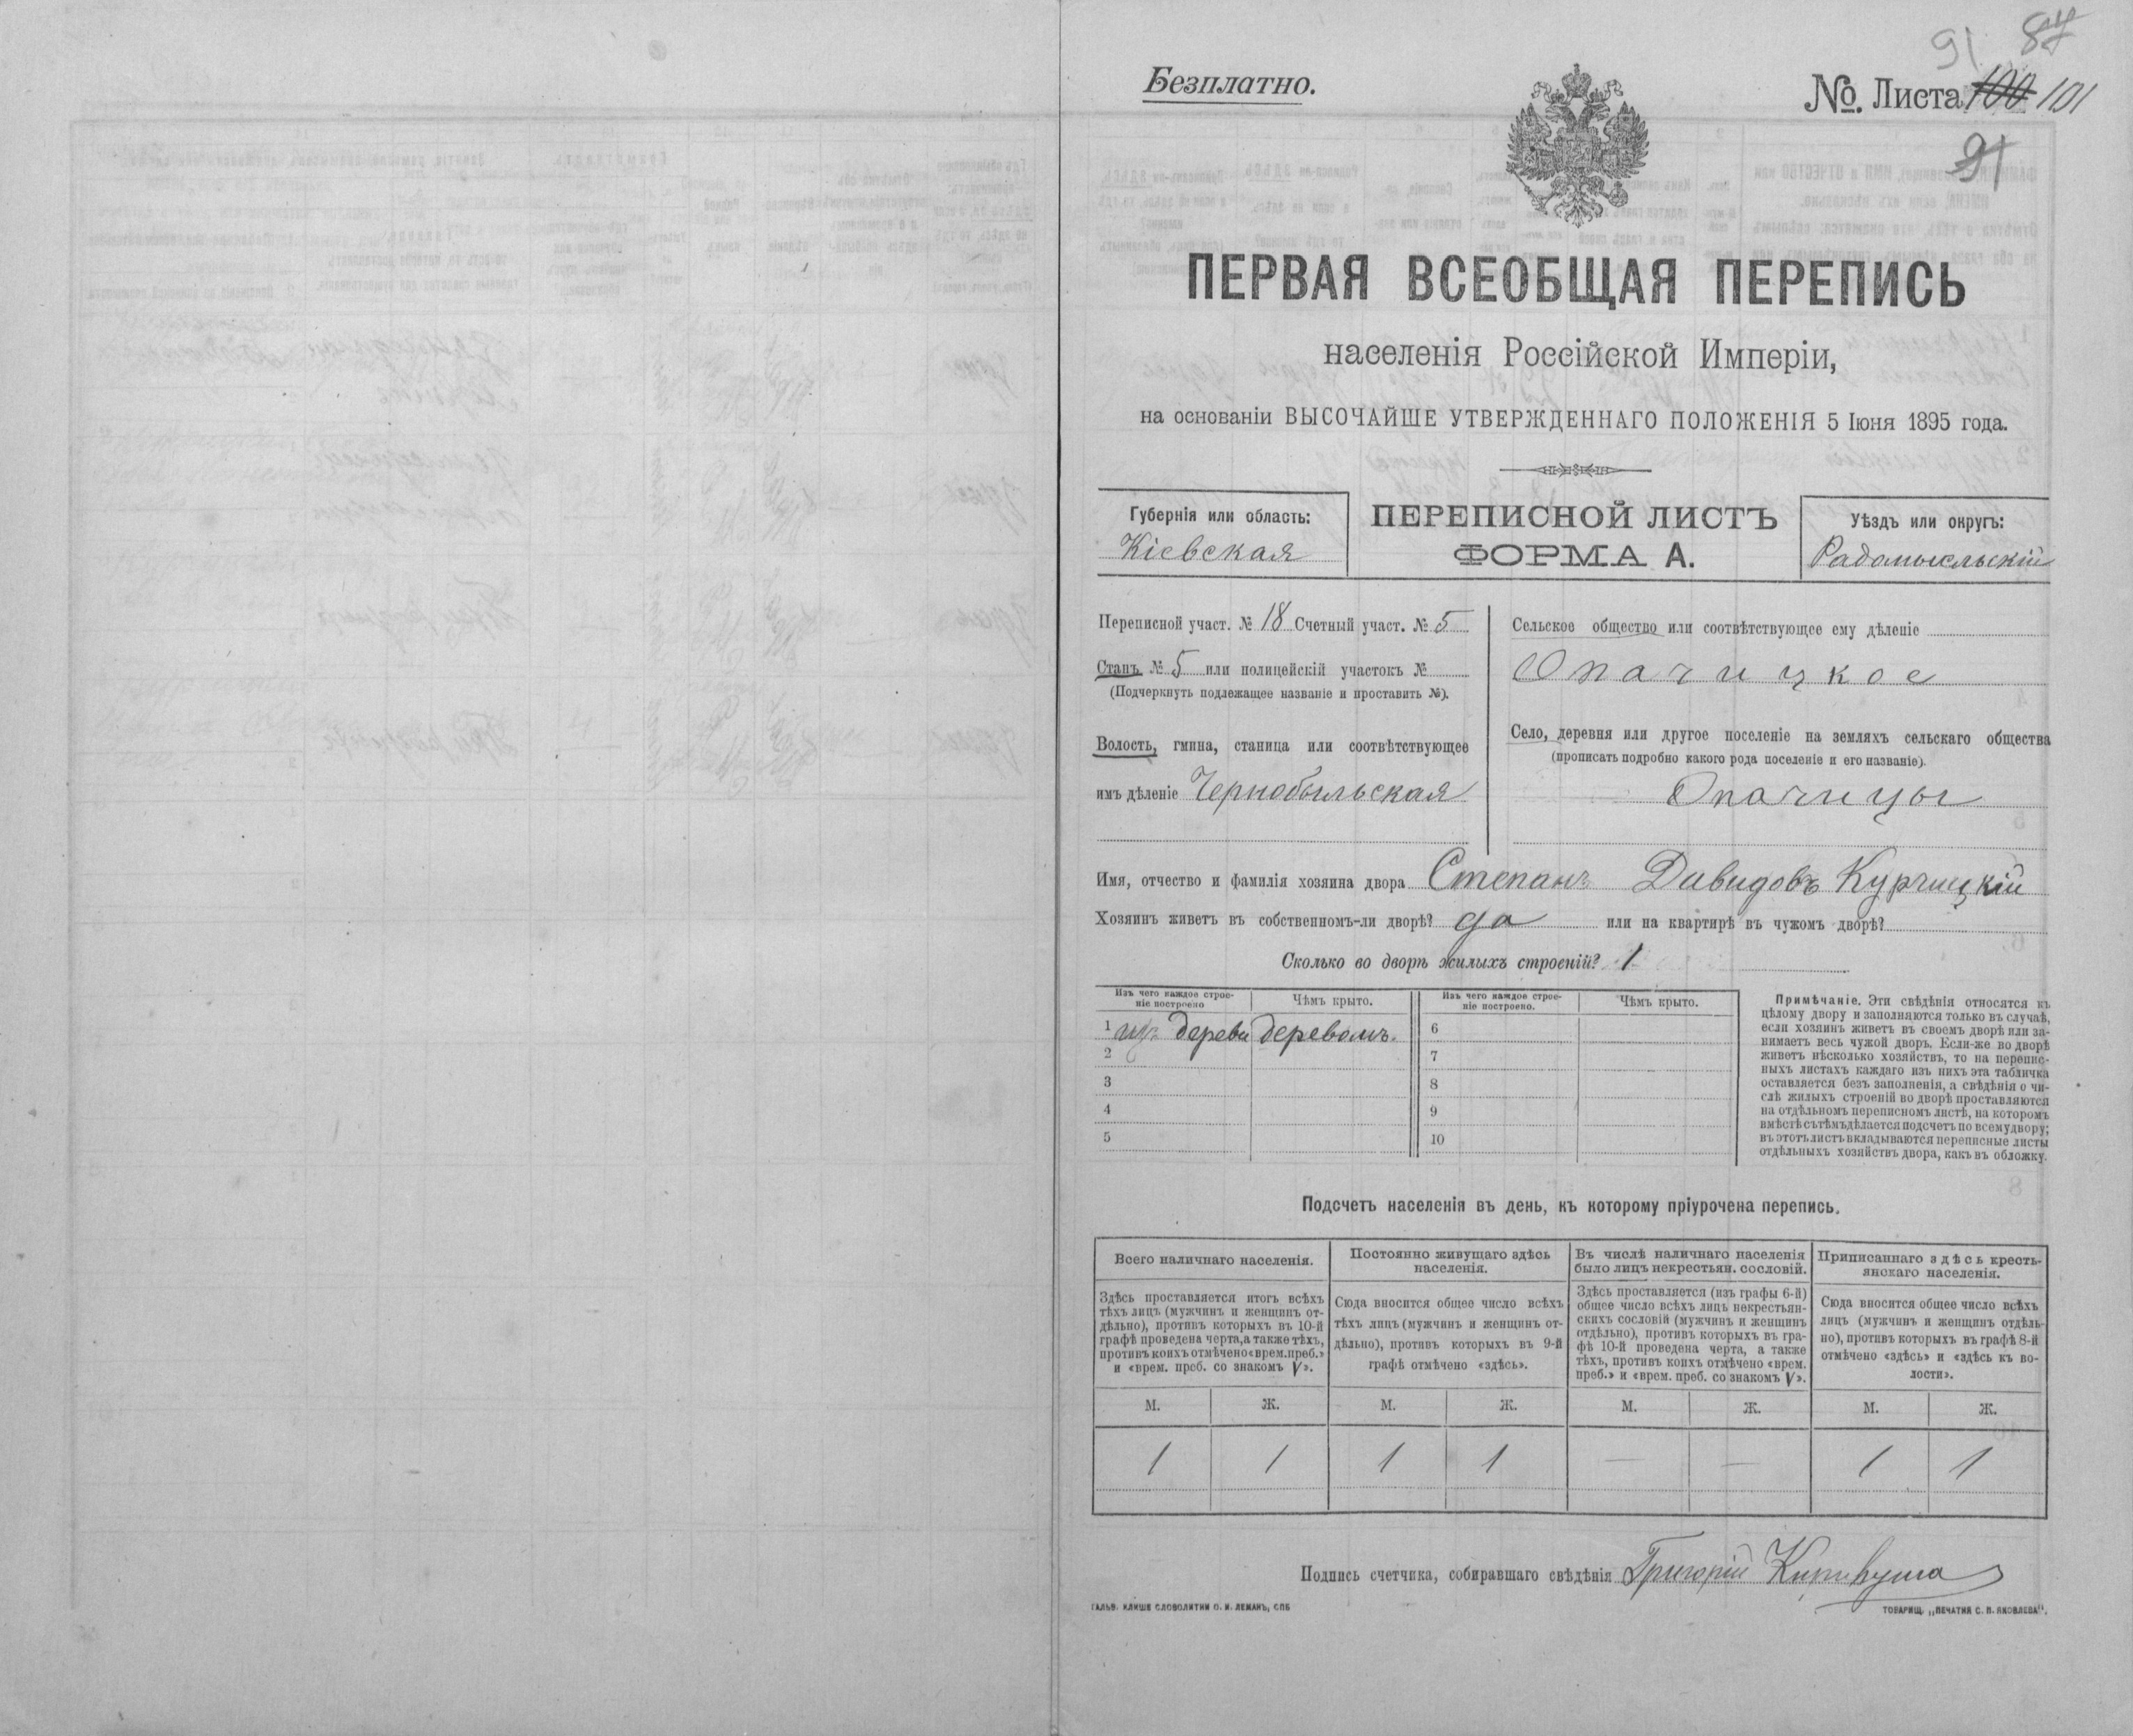 91 87
Безплатно.
№ Листа 100 101
91
ПЕРВАЯ ВСЕОБЩАЯ ПЕРЕПИСЬ
населенія Россійской Имперіи,
на основаніи ВЫСОЧАЙШЕ УТВЕРЖДЕННАГО ПОЛОЖЕНІЯ 5 Іюня 1895 года.
Губернія или область:
Кіевская
ПЕРЕПИСНОЙ ЛИСТЪ
ФОРМА А.
Уѣздъ или округъ:
Радомысльскій
Переписной участ. № 18 Счетный участ. № 5
Станъ № 5 или полицейскій участокъ №
(Подчеркнуть подлежащее названіе и проставить №).
Волость, гмина, станица или соотвѣтствующее
имъ дѣленіе Чернобыльская
Сельское общество или соотвѣтствующее ему дѣленіе
Опачицкое
Село, деревня или другое поселеніе на земляхъ сельскаго общества
(прописать подробно какого рода поселеніе и его названіе).
Опачицы
Имя, отчество и фамилія хозяина двора Степанъ Давидовъ Курчицкій
Хозяинъ живетъ въ собственномъ-ли дворѣ? да или на квартирѣ въ чужомъ дворѣ?
Сколько во дворѣ жилыхъ строеній? 1
Изъ чего каждое строе-
ніе построено
Чѣмъ крыто.
Изъ чего каждое строе-
ніе построено.
Чѣмъ крыто.
1 изъ дерева деревомъ. 6
2 7
3 8
4 9
5 10
Примѣчаніе. Эти свѣдѣнія относятся къ
цѣлому двору и заполняются только въ случаѣ,
если хозяинъ живетъ въ своемъ дворѣ или за-
нимаетъ весь чужой дворъ. Если-же во дворѣ
живетъ нѣсколько хозяйствъ, то на перепис-
ныхъ листахъ каждаго изъ нихъ эта табличка
оставляется безъ заполненія, а свѣдѣнія о чи-
слѣ жилыхъ строеній во дворѣ проставляются
на отдѣльномъ переписномъ листѣ, на которомъ
вмѣстѣ съ тѣмъ дѣлается подсчетъ по всему двору;
въ этотъ листъ вкладываются переписные листы
отдѣльныхъ хозяйствъ двора, какъ въ обложку.
Подсчетъ населенія въ день, къ которому пріурочена перепись.
Всего наличнаго населенія.
Постоянно живущаго здѣсь
населенія.
Въ числѣ наличнаго населенія
было лицъ некрестьян. сословій.
Приписаннаго здѣсь кресть-
янскаго населенія.
Здѣсь проставляется итогъ всѣхъ
тѣхъ лицъ (мужчинъ и женщинъ от-
дѣльно), противъ которыхъ въ 10-й
графѣ проведена черта, а также тѣхъ,
противъ коихъ отмѣчено «врем. преб.»
и «врем. преб. со знакомъ V».
Сюда вносится общее число всѣхъ
тѣхъ лицъ (мужчинъ и женщинъ от-
дѣльно), противъ которыхъ въ 9-й
графѣ отмѣчено «здѣсь».
Здѣсь проставляется (изъ графы 6-й)
общее число всѣхъ лицъ некрестьян-
скихъ сословій (мужчинъ и женщинъ
отдѣльно), противъ которыхъ въ гра-
фѣ 10-й проведена черта, а также
тѣхъ, противъ коихъ отмѣчено «врем.
преб.» и «врем. преб. со знакомъ V».
Сюда вносится общее число всѣхъ
лицъ (мужчинъ и женщинъ отдѣль-
но), противъ которыхъ въ графѣ 8-й
отмѣчено «здѣсь» и «здѣсь къ во-
лости».
М. Ж. М. Ж. М. Ж. М. Ж.
1 1 1 1 — — 1 1
Подпись счетчика, собиравшаго свѣдѣнія Григорій
ГАЛЬВ. КЛИШЕ СЛОВОЛИТНИ О. И. ЛЕМАНЪ, СПБ
ТОВАРИЩ. „ПЕЧАТНЯ С. П. ЯКОВЛЕВА".